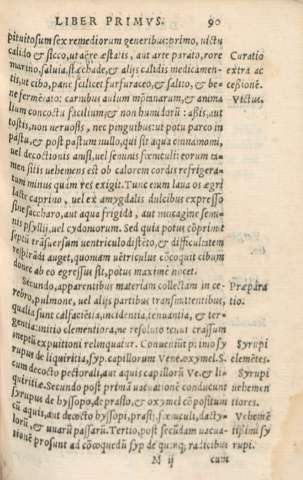 LIBER PRIMVS. 90
pituitosum sex remediorum generibus: primo, uictu
calido & sicco, ut aëre æstatis, aut arte parato, rore
marino, saluia, stæchade, & alijs calidis medicamen-
tis, ut cibo, pane scilicet furfuraceo, & salito, & be-
ne fermētato: carnibus auium mōtanarum, & anima
lium concoctu facilium, & non humidorū: aßis, aut
tostis, non neruosis, nec pinguibus: ut potu parco in
pastu, & post pastum nullo, qui sit aqua cinnamomi,
uel decoctionis anisi, uel seminis fœniculi: eorum ta-
men sitis uehemens est ob calorem cordis refrigera-
tum minus quim res exigit. Tunc eum laua os ægri
lacte caprino, uel ex amygdalis dulcibus expresso
sine saccharo, aut aqua frigida, aut mucagine semi-
nis psyllij, uel cydonorum. Sed quia potus cōprimē
septū trāsuersum uentriculo distēto, & difficultatem
respirādi auget, quoniam uētriculus cōcoquit cibum
donec ab eo egressus sit, potus maximè nocet.
Secundo, apparentibus materiam collectam in ce-
rebro, pulmone, uel alijs partibus transmittentibus,
qualia sunt calfaciētia, incidentia, tenuantia, & ter-
gentia: initio clementiora, ne resoluto tenui crassum
ineptū expuitioni relinquatur. Conueniūt primo sy
rupus de liquiritia, syp. capillorum Vene. oxymel. S.
cum decocto pectorali, aut aquis capillorū Ve. & li-
quiritiæ. Secundo post primā uacuationē conducunt
syrupus de hyssopo, de prasio, & oxymel cō positum
cū aquis, aut decocto hyssopi, prasij: fœniculi, dacty-
lorū, & uuarū passarū. Tertio, post secūdam uacua-
tionē prosunt ad cōcoquēdū syp de quinq; radicibus
M ij cum
Curatio
extra ac
ceßionē.
Victus.
Præpara
tio.
Syrupi
clemētes.
Syrupi
uehemen
tiores.
Vehemē
tißimi sy
rupi.